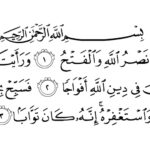 بِسْمِ اللَّهِ الرَّحْمَٰنِ الرَّحِيمِ
نَصْرُ اللَّهِ وَالْفَتْحُ ١ وَرَأَيْتَ
فِي دِينِ اللَّهِ أَفْوَاجًا ٢ فَسَبِّحْ
وَاسْتَغْفِرْهُ إِنَّهُ كَانَ تَوَّابًا ٣